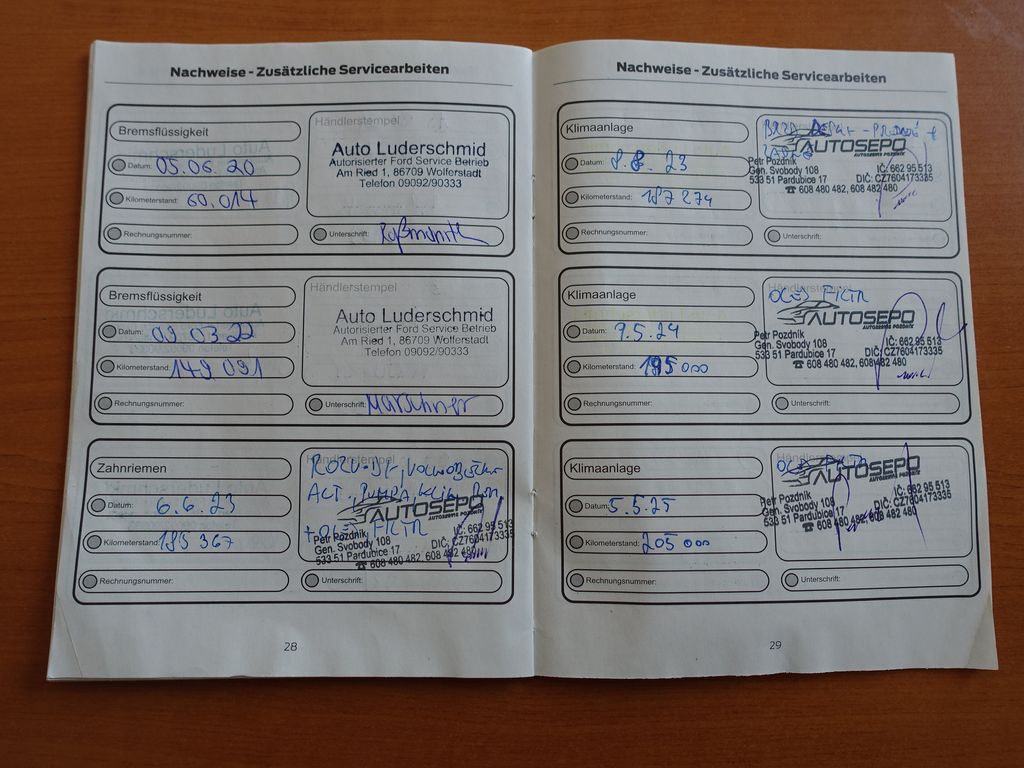 Nachweise - Zusätzliche Servicearbeiten
Bremsflüssigkeit
Datum: 05.06.20
Kilometerstand: 60.014
Rechnungsnummer:
Händlerstempel
Auto Luderschmid
Autorisierter Ford Service Betrieb
Am Ried 1, 86709 Wolferstadt
Telefon 09092/90333
Unterschrift:
Bremsflüssigkeit
Datum: 09.03.22
Kilometerstand: 149 091
Rechnungsnummer:
Händlerstempel
Auto Luderschmid
Autorisierter Ford Service Betrieb
Am Ried 1, 86709 Wolferstadt
Telefon 09092/90333
Unterschrift: Marschner
Zahnriemen
Datum: 6.6.23
Kilometerstand: 185 367
Rechnungsnummer:
Händlerstempel
ALT., PUMPA
+ OLEJ FILTR
AUTOSEPO
AUTOSERVIS POZDNÍK
Petr Pozdník
Gen. Svobody 108
533 51 Pardubice 17
IČ: 662 95 513
DIČ: CZ7604173335
☎ 608 480 482, 608 482 480
Unterschrift:
28
Nachweise - Zusätzliche Servicearbeiten
Klimaanlage
Datum: 8.8.23
Kilometerstand: 187 274
Rechnungsnummer:
Händlerstempel
AUTOSEPO
AUTOSERVIS POZDNÍK
Petr Pozdník
Gen. Svobody 108
533 51 Pardubice 17
IČ: 662 95 513
DIČ: CZ7604173335
☎ 608 480 482, 608 482 480
Unterschrift:
Klimaanlage
Datum: 9.5.24
Kilometerstand: 195 000
Rechnungsnummer:
Händlerstempel
OLEJ FILTR
AUTOSEPO
AUTOSERVIS POZDNÍK
Petr Pozdník
Gen. Svobody 108
533 51 Pardubice 17
IČ: 662 95 513
DIČ: CZ7604173335
☎ 608 480 482, 608 482 480
Unterschrift:
Klimaanlage
Datum: 5.5.25
Kilometerstand: 205 000
Rechnungsnummer:
Händlerstempel
AUTOSEPO
AUTOSERVIS POZDNÍK
Petr Pozdník
Gen. Svobody 108
533 51 Pardubice 17
IČ: 662 95 513
DIČ: CZ7604173335
☎ 608 480 482, 608 482 480
Unterschrift:
29